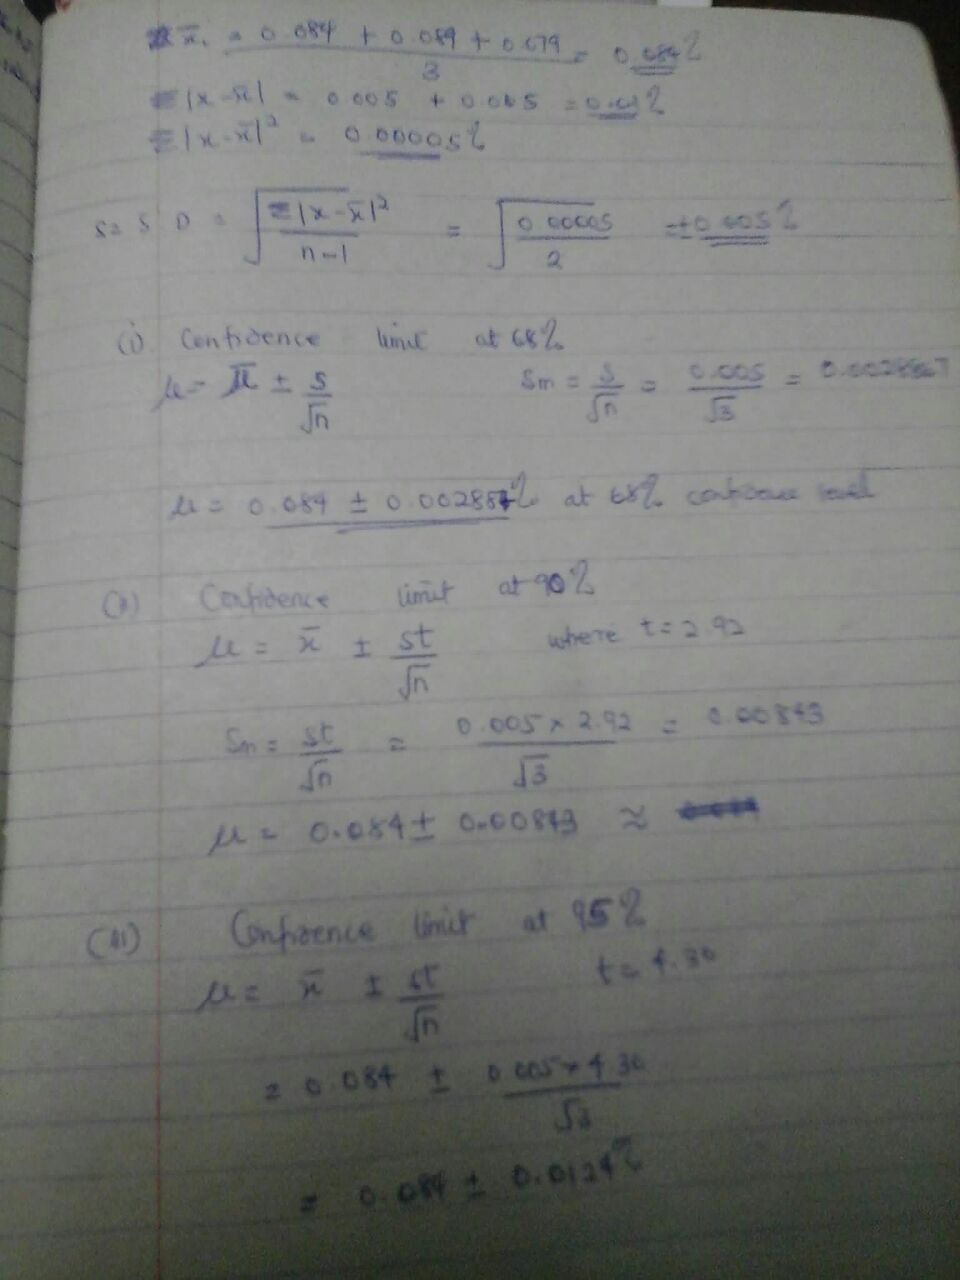 x̄ = 0.084 + 0.089 + 0.079 / 3 = 0.084%
Σ|x-x̄| = 0.005 + 0.005 = 0.01%
Σ|x-x̄|² = 0.00005%
s = S D = √(Σ|x-x̄|² / n-1) = √(0.00005 / 2) = ±0.005%
(i) Confidence limit at 68%
μ = x̄ ± s/√n Sm = s/√n = 0.005/√3 =
μ = 0.084 ± at 68% confidence level
(ii) Confidence limit at 90%
μ = x̄ ± st/√n where t = 2.92
Sm = st/√n = 0.005 × 2.92 / √3 = 0.00843
μ = 0.084 ± 0.00843 ≈
(iii) Confidence limit at 95%
μ = x̄ ± st/√n t = 4.30
= 0.084 ± 0.005 × 4.30 / √3
= 0.084 ± 0.0124%